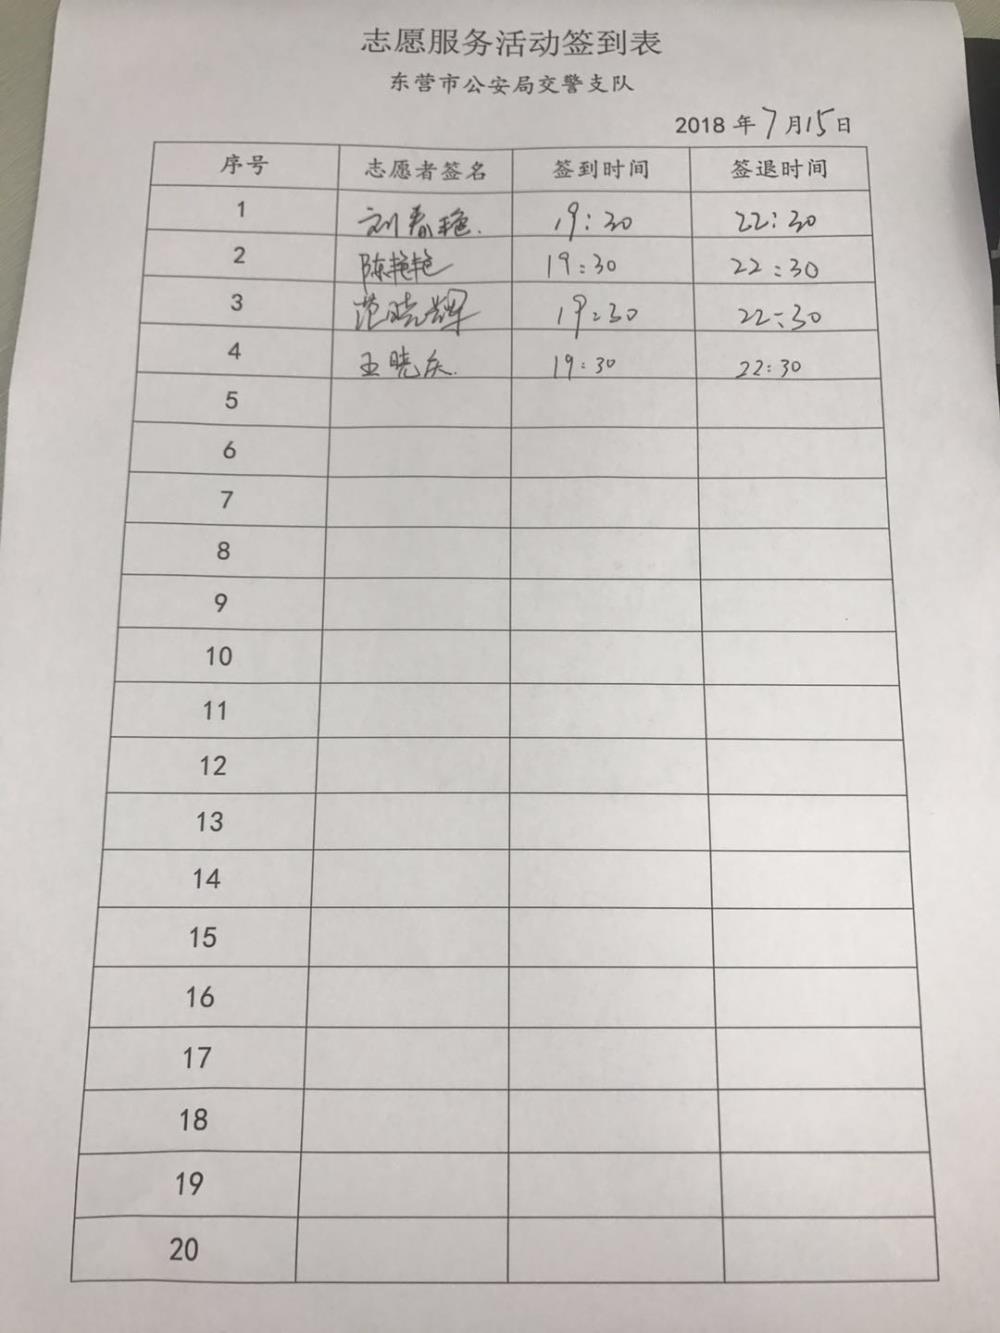 志愿服务活动签到表
东营市公安局交警支队
2018 年 7 月 15 日
序号 志愿者签名 签到时间 签退时间
1 刘春艳. 19:30 22:30
2 陈艳艳 19:30 22:30
3 范晓辉 19:30 22:30
4 王晓庆. 19:30 22:30
5
6
7
8
9
10
11
12
13
14
15
16
17
18
19
20